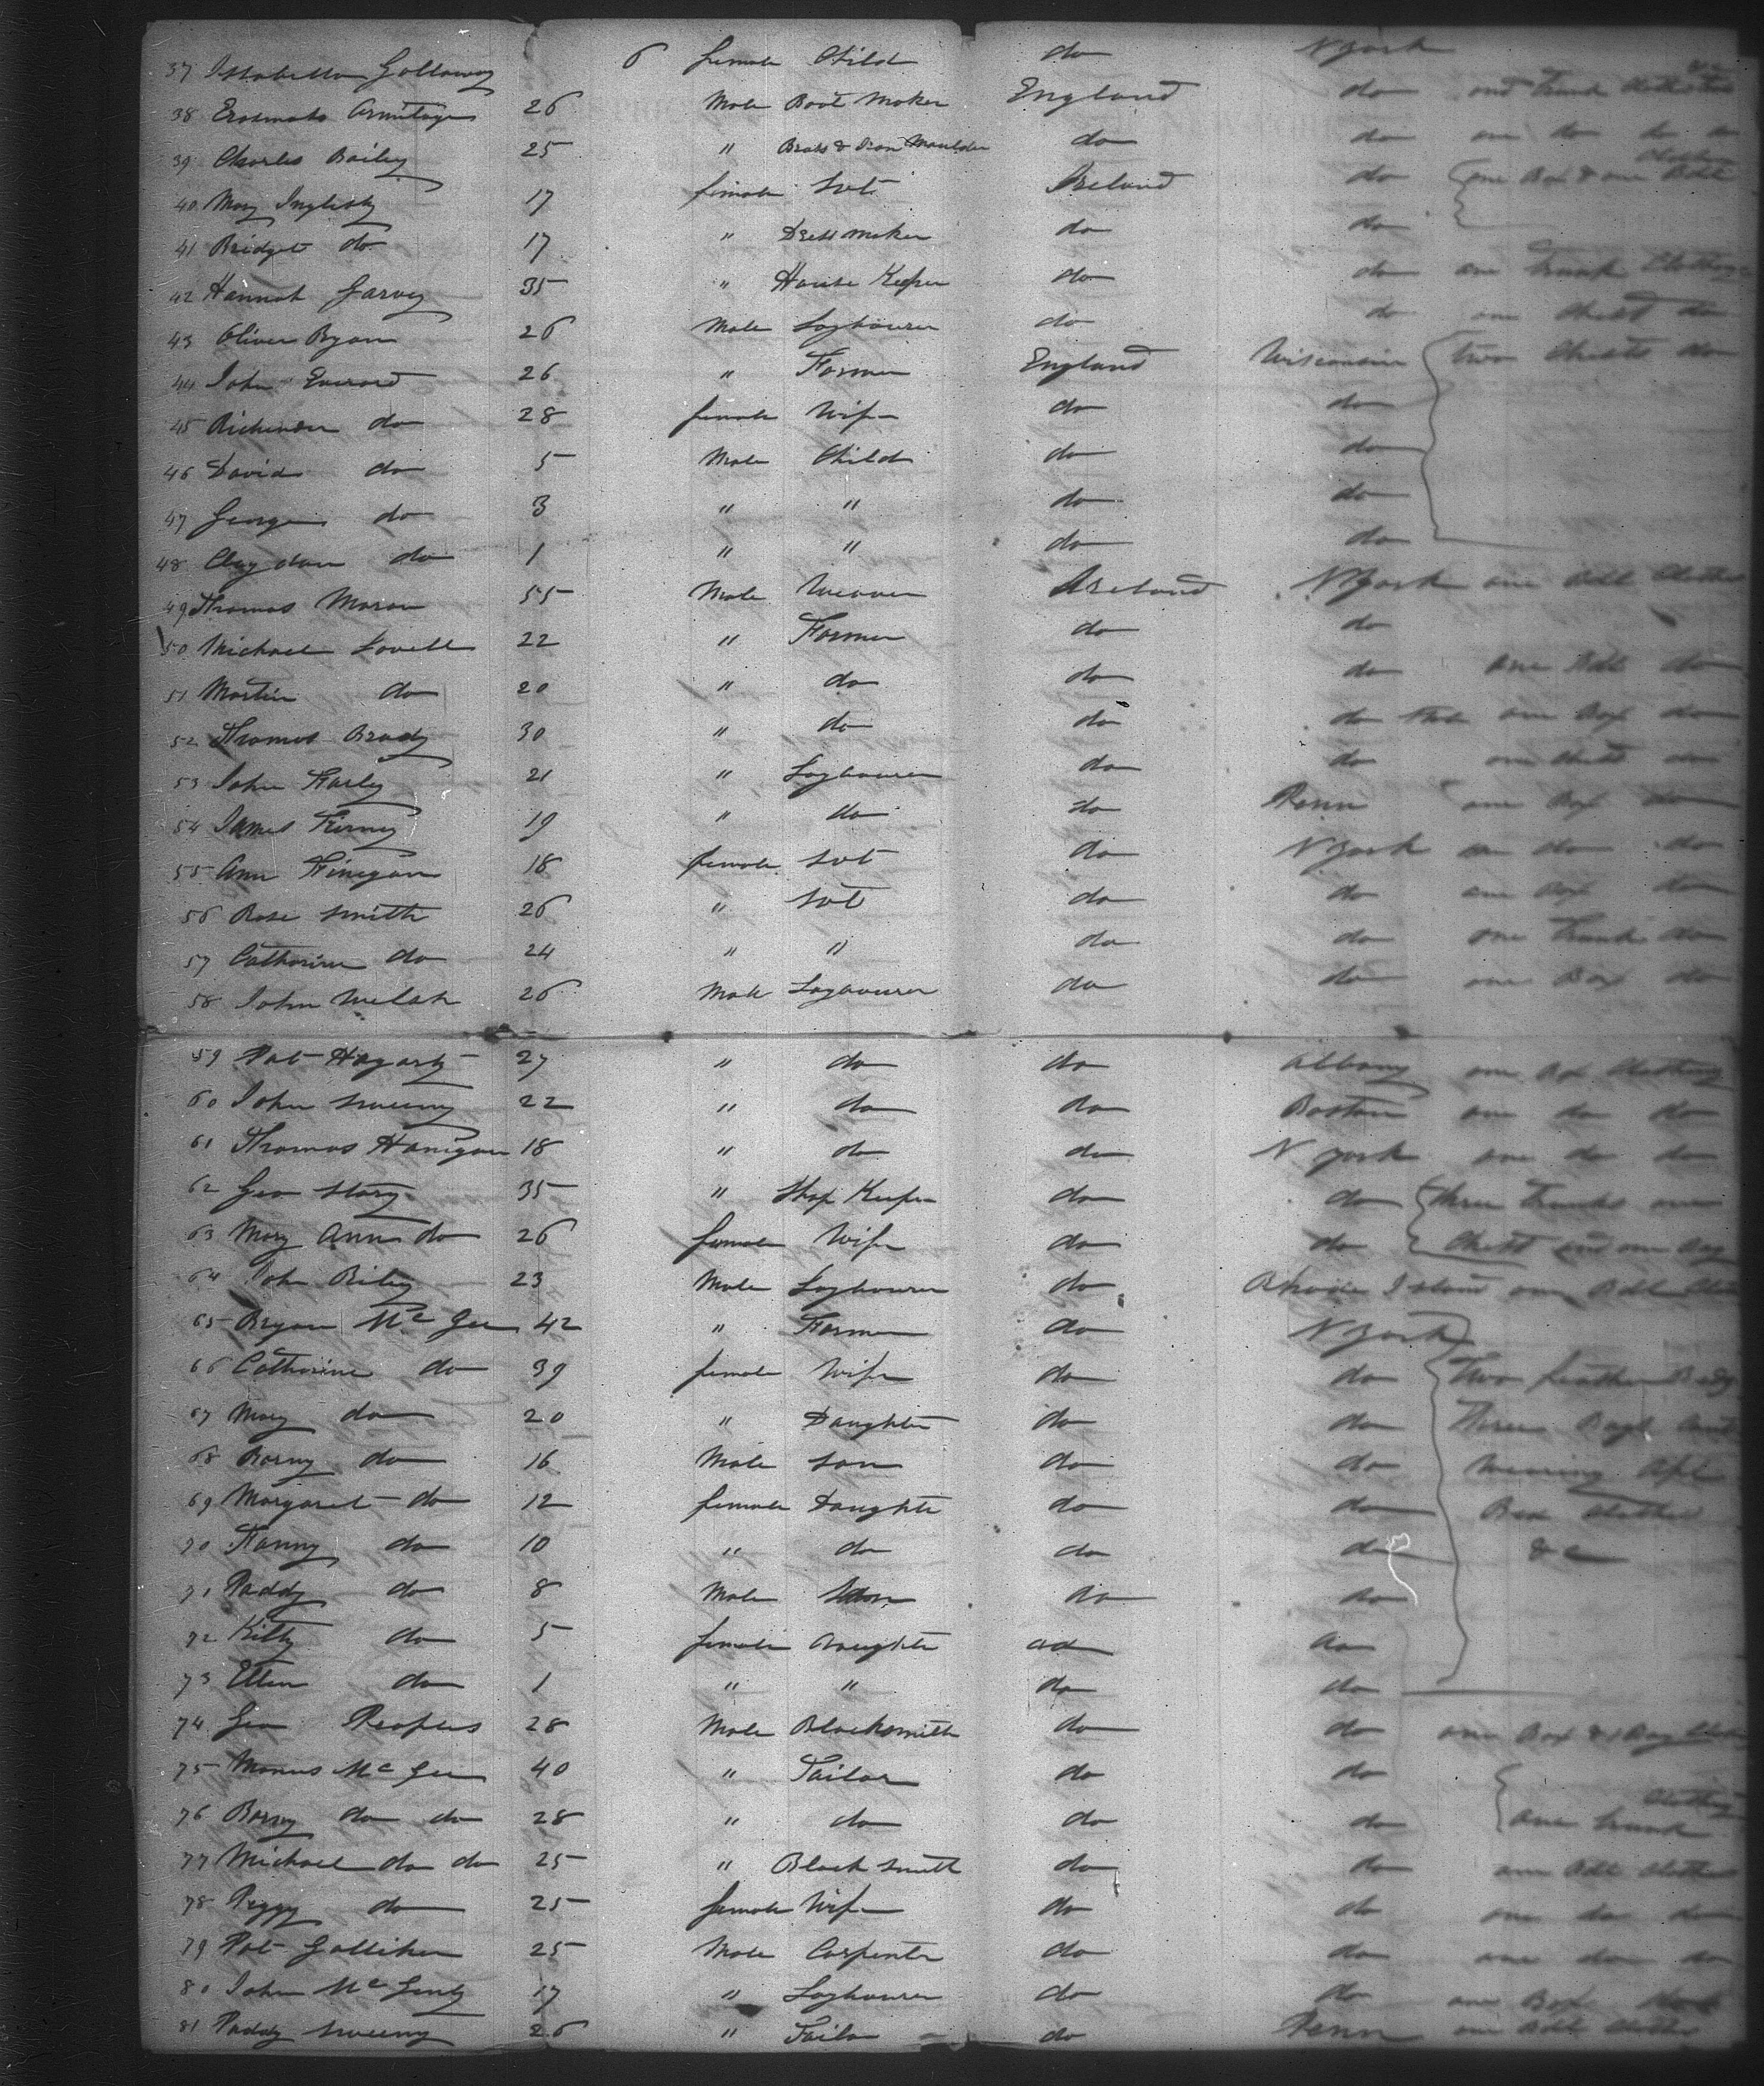 37 Issabella Gallaway 6 female Child do N York
38 Erasmato Armitage 26 Male Boot Maker England do and Trunk
39 Charles Bailey 25 " Brass & Iron Moulder do do one do
40 Mary Inglisby 17 female Svt Ireland do one Box & one Bdl
41 Bridget do 17 " Dress Maker do do
42 Hannah Garvey 35 " House Keeper do do one Trunk Clothing
43 Oliver Ryan 26 Male Laybourer do do one Chest do
44 John Everard 26 " Farmer England Wisconsin two Chests do
45 do 28 female Wife do do
46 David do 5 Male Child do do
47 George do 3 " " do do
48 Claydon do 1 " " do do
49 Thomas Moran 55 Male Weaver Ireland N York one Bdl Clothes
50 Michael Lovell 22 " Farmer do do
51 Martin do 20 " do do do one Bdl do
52 Thomas Brady 30 " do do do one Box do
53 John Farley 21 " Laybourer do do one Chest do
54 James Kierney 19 " do do Penn one Box do
55 Ann Finegan 18 female Svt do N York one do do
56 Rose Smith 26 " Svt do do one Box do
57 Catharine do 24 " " do do one Trunk do
58 John Welsh 26 Male Laybourer do do one Box do
59 Pat Hagarty 27 " do do Albany one Box Clothing
60 John Sweeny 22 " do do Boston one do do
61 Thomas Hanigan 18 " do do N York one do do
62 Geo Story 35 " Shop Keeper do do three Trunks one
63 Mary Ann do 26 female Wife do do Chest and one Bag
64 John Riley 23 Male Laybourer do Rhode Island one Bdl
65 Bryan Mc Gee 42 " Farmer do N York
66 Catharine do 39 female Wife do do Two feather Beds
67 Mary do 20 " Daughter do do Three Bags and
68 Barny do 16 Male Son do do Wearing Apl
69 Margaret do 12 female Daughter do do Bed Clothes
70 Fanny do 10 " do do do &c
71 Paddy do 8 Male Son do do
72 Kitty do 5 female Daughter do do
73 Ellen do 1 " " do do
74 Geo Peoples 28 Male Blacksmith do do one Box & 1 Bag
75 Manus Mc Gee 40 " Tailor do do
76 Barny do do 28 " do do do one Trunk Clothing
77 Michael do do 25 " Black Smith do do one Bdl Clothes
78 Peggy do 25 female Wife do do one do do
79 Pat Galliher 25 Male Carpenter do do one do do
80 John Mc Ginty 17 " Laybourer do do one Box
81 Paddy Sweeny 26 " Tailor do Penn one Bdl Clothes